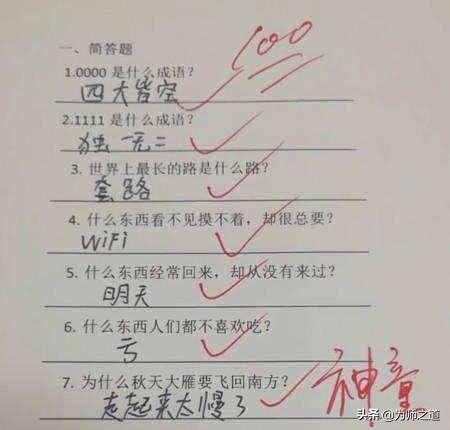 100
一、简答题
1.0000 是什么成语？
四大皆空
2.1111 是什么成语？
独一无二
3. 世界上最长的路是什么路？
套路
4. 什么东西看不见摸不着，却很总要？
WiFi
5. 什么东西经常回来，却从没有来过？
明天
6. 什么东西人们都不喜欢吃？
亏
7. 为什么秋天大雁要飞回南方？
走起来太慢了
神童
头条@为师之道